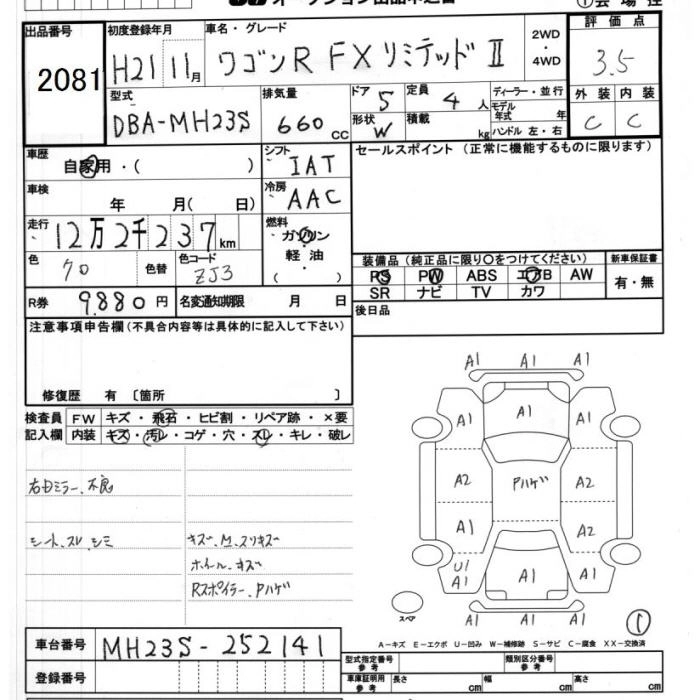 出品番号 初度登録年月 車名・グレード 2WD ・ 4WD 評価点
2081 H21 11月 ワゴンR FXリミテッドⅡ 3.5
型式 排気量 ドア 5 定員 4人 ディーラー・並行 外装 内装
DBA-MH23S 660cc 形状 W 積載 kg モデル年式 年 C C
ハンドル 左・右
車歴 自家用・( ) シフト IAT セールスポイント (正常に機能するものに限ります)
車検 年 月( 日) 冷房 AAC
走行 12万2千237km 燃料 ガソリン
軽油
色 クロ 色替 色コード ZJ3 装備品 (純正品に限り○をつけてください) 新車保証書
PS PW ABS エアB AW 有・無
SR ナビ TV カワ
R券 9,880円 名変通知期限 月 日 後日品
注意事項申告欄(不具合内容等は具体的に記入して下さい)
修復歴 有 〔箇所 〕
検査員 FW キズ・飛石・ヒビ割・リペア跡・×要
記入欄 内装 キズ・汚レ・コゲ・穴・スレ・キレ・破レ
右Dミラー、不良
シート、スレ、シミ キズ、M、スリキズ
ホイール、キズ
Rスポイラー、Pハゲ
A1 A1 A1
A1 A1 A1
A2 Pハゲ A2
A1 A2
U1
A1 A1 A1
スペア A1 A1 A1
1
A-キズ E-エクボ U-凹み W-補修跡 S-サビ C-腐食 XX-交換済
車台番号 MH23S-252141
型式指定番号 参考 類別区分番号 参考
登録番号 車庫証明用 参考 長さ cm 幅 cm 高さ cm